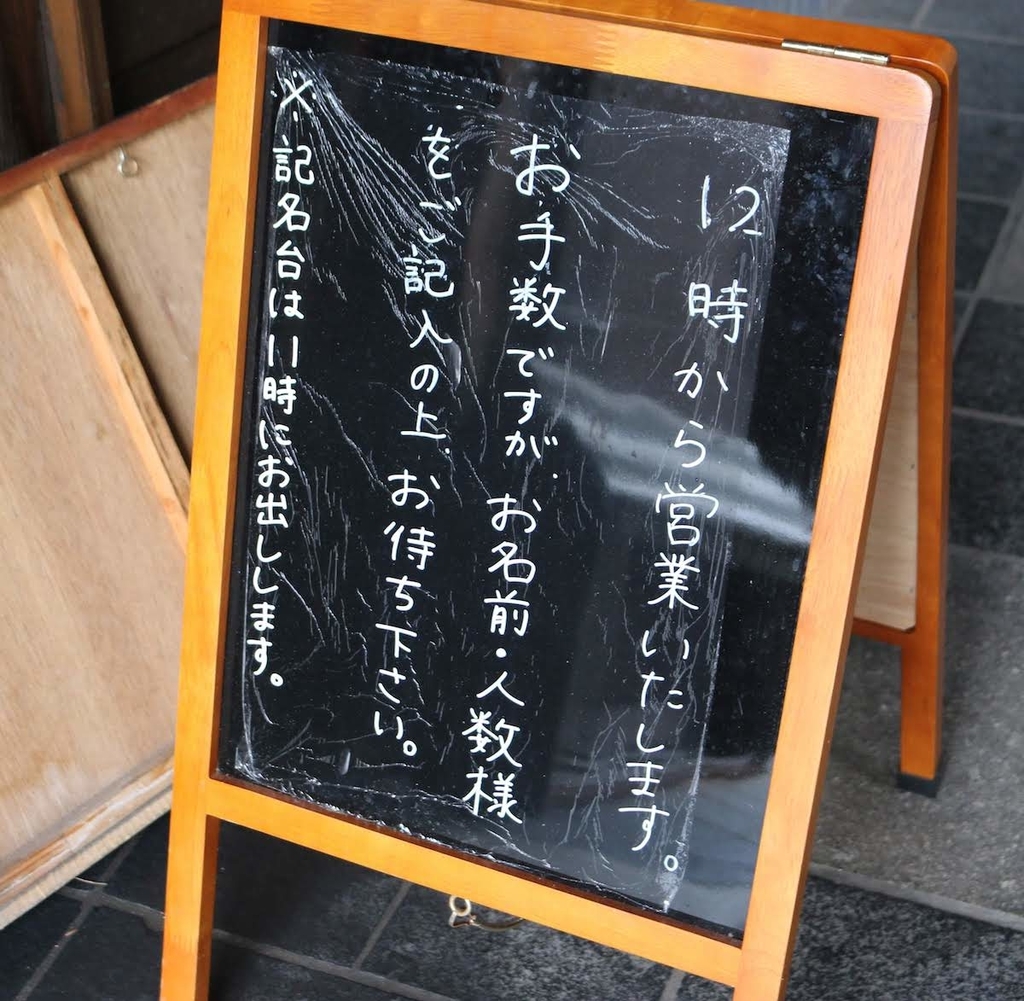 12時から営業いたします。
お手数ですが、お名前・人数様
をご記入の上、お待ち下さい。
※記名台は11時にお出しします。